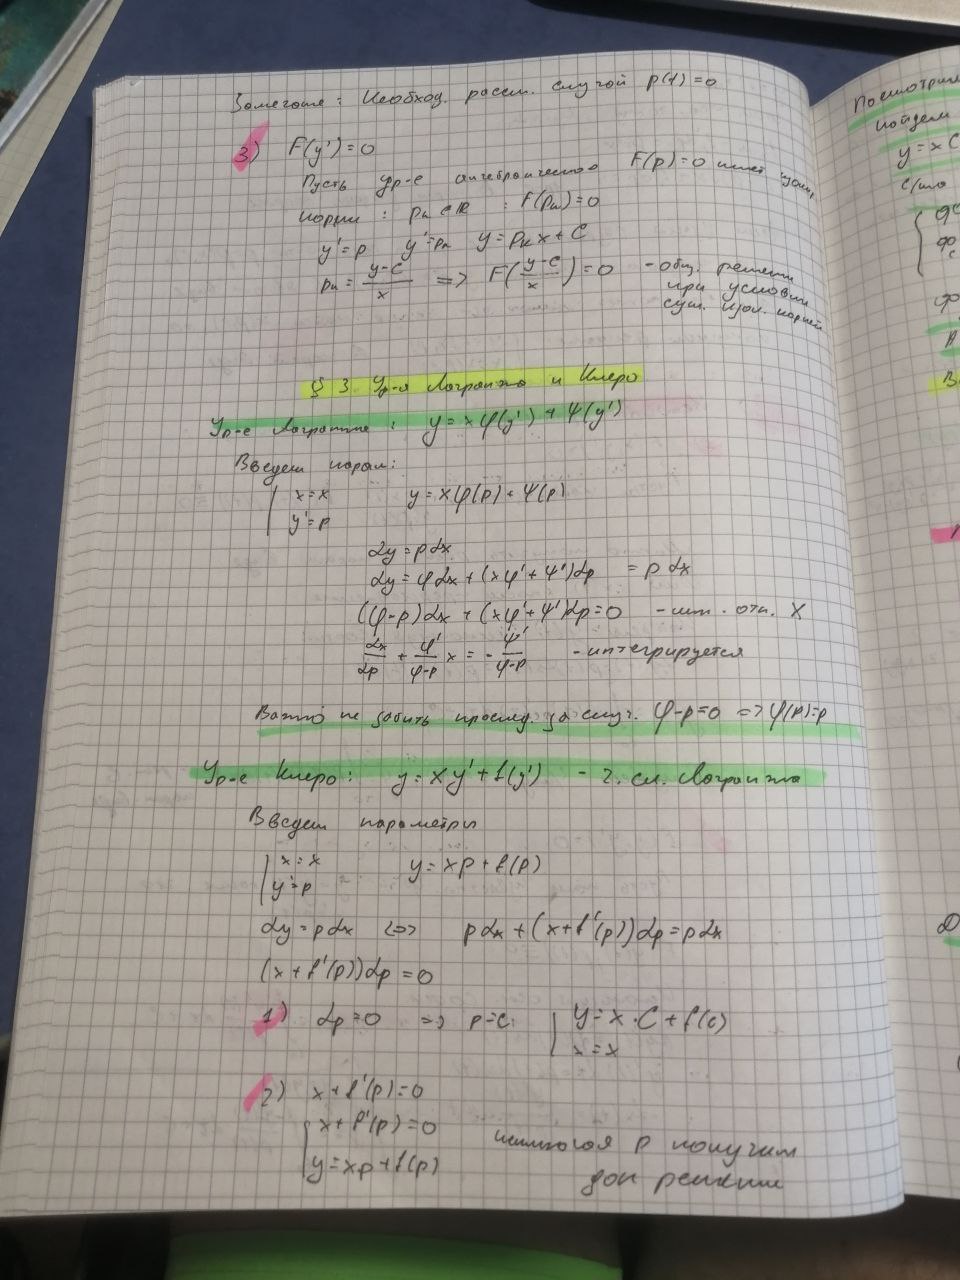 Замечание: Необход. рассм. случай p(t)=0
3) F(y')=0
Пусть ур-е алгебраическое F(p)=0 имеет
корни: pₖ ∈ ℝ : F(pₖ)=0
y'=p y'=pₖ y=pₖx+C
pₖ = (y-C)/x => F((y-C)/x)=0 - общ. решение
при условии
сущ. корней
§ 3. Ур-я Лагранжа и Клеро
Ур-е Лагранжа: y=xφ(y')+ψ(y')
Введем парам:
{ x=x y=xφ(p)+ψ(p)
y'=p
dy=pdx
dy=φdx+(xφ'+ψ')dp = pdx
(φ-p)dx+(xφ'+ψ')dp=0 - лин. отн. x
dx/dp + φ'/(φ-p) x = - ψ'/(φ-p) - интегрируется
Важно не забыть за случ. φ-p=0 => φ(p)=p
Ур-е Клеро: y=xy'+f(y') - ч. сл. Лагранжа
Введем параметры
{ x=x y=xp+f(p)
y'=p
dy=pdx <=> pdx+(x+f'(p))dp=pdx
(x+f'(p))dp=0
1) dp=0 => p=c: { y=x·C+f(c)
x=x
2) x+f'(p)=0
{ x+f'(p)=0
y=xp+f(p)
p получим
доп решение
Посмотрим
найдем
y=xC